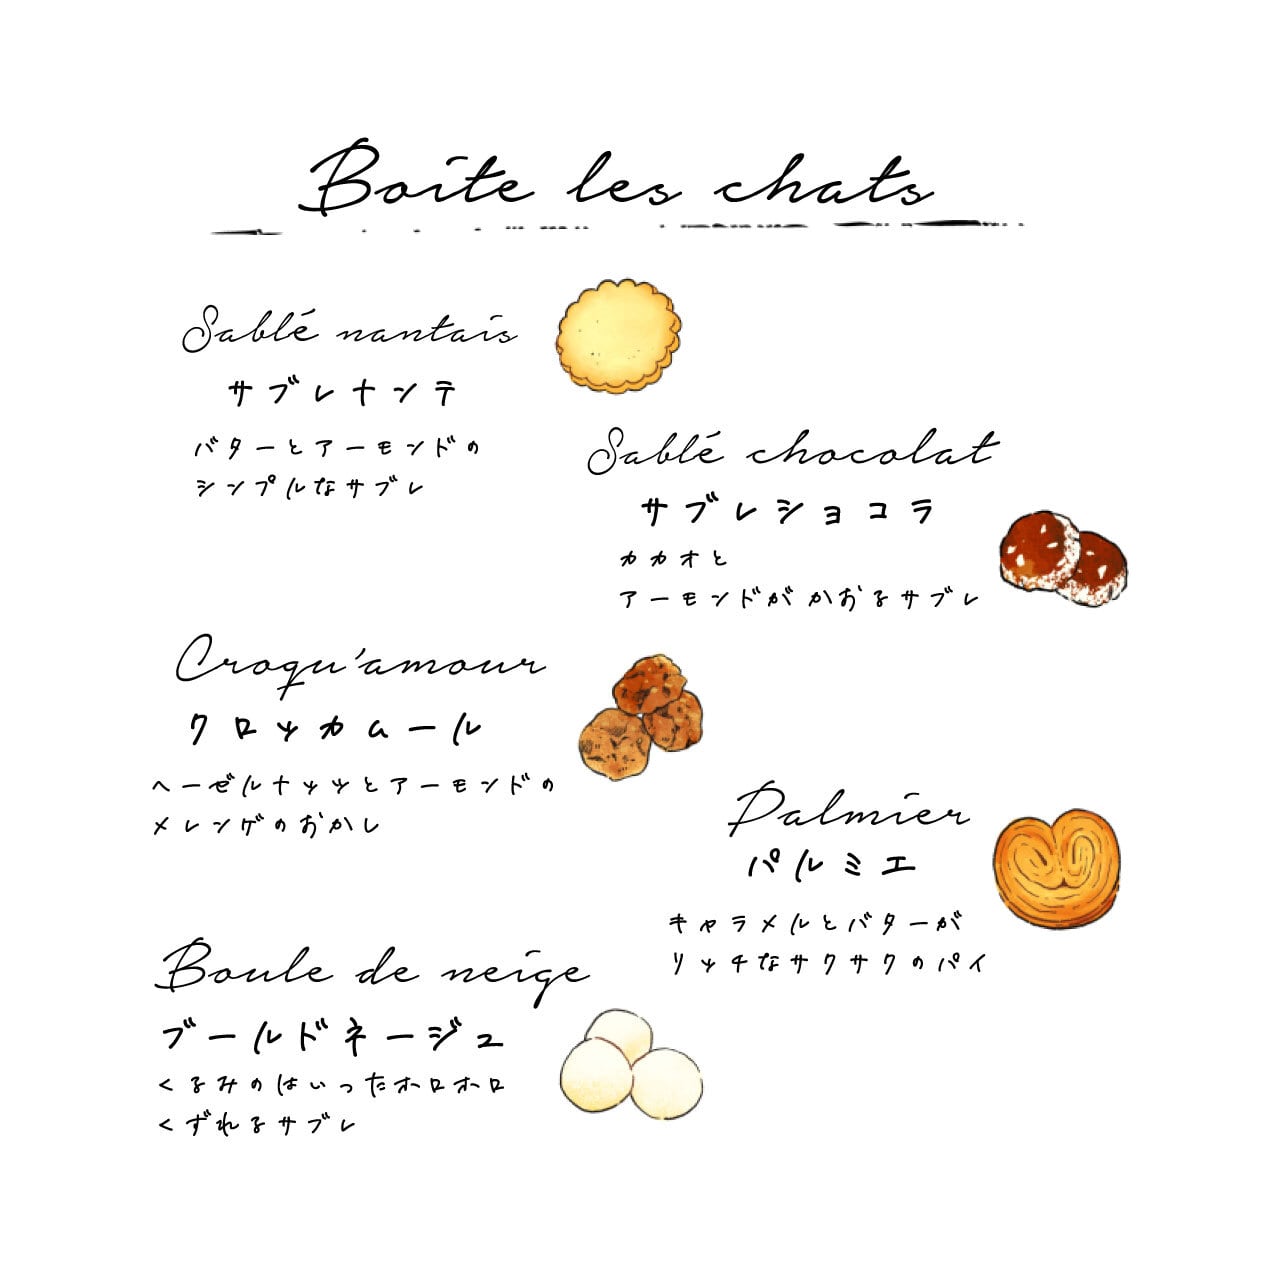 Boîte les chats
Sablé nantais
サブレナンテ
バターとアーモンドの
シンプルなサブレ
Sablé chocolat
サブレショコラ
カカオと
アーモンドがかおるサブレ
Croqu'amour
クロッカムール
ヘーゼルナッツとアーモンドの
メレンゲのおかし
Palmier
パルミエ
キャラメルとバターが
リッチなサクサクのパイ
Boule de neige
ブールドネージュ
くるみのはいったホロホロ
くずれるサブレ